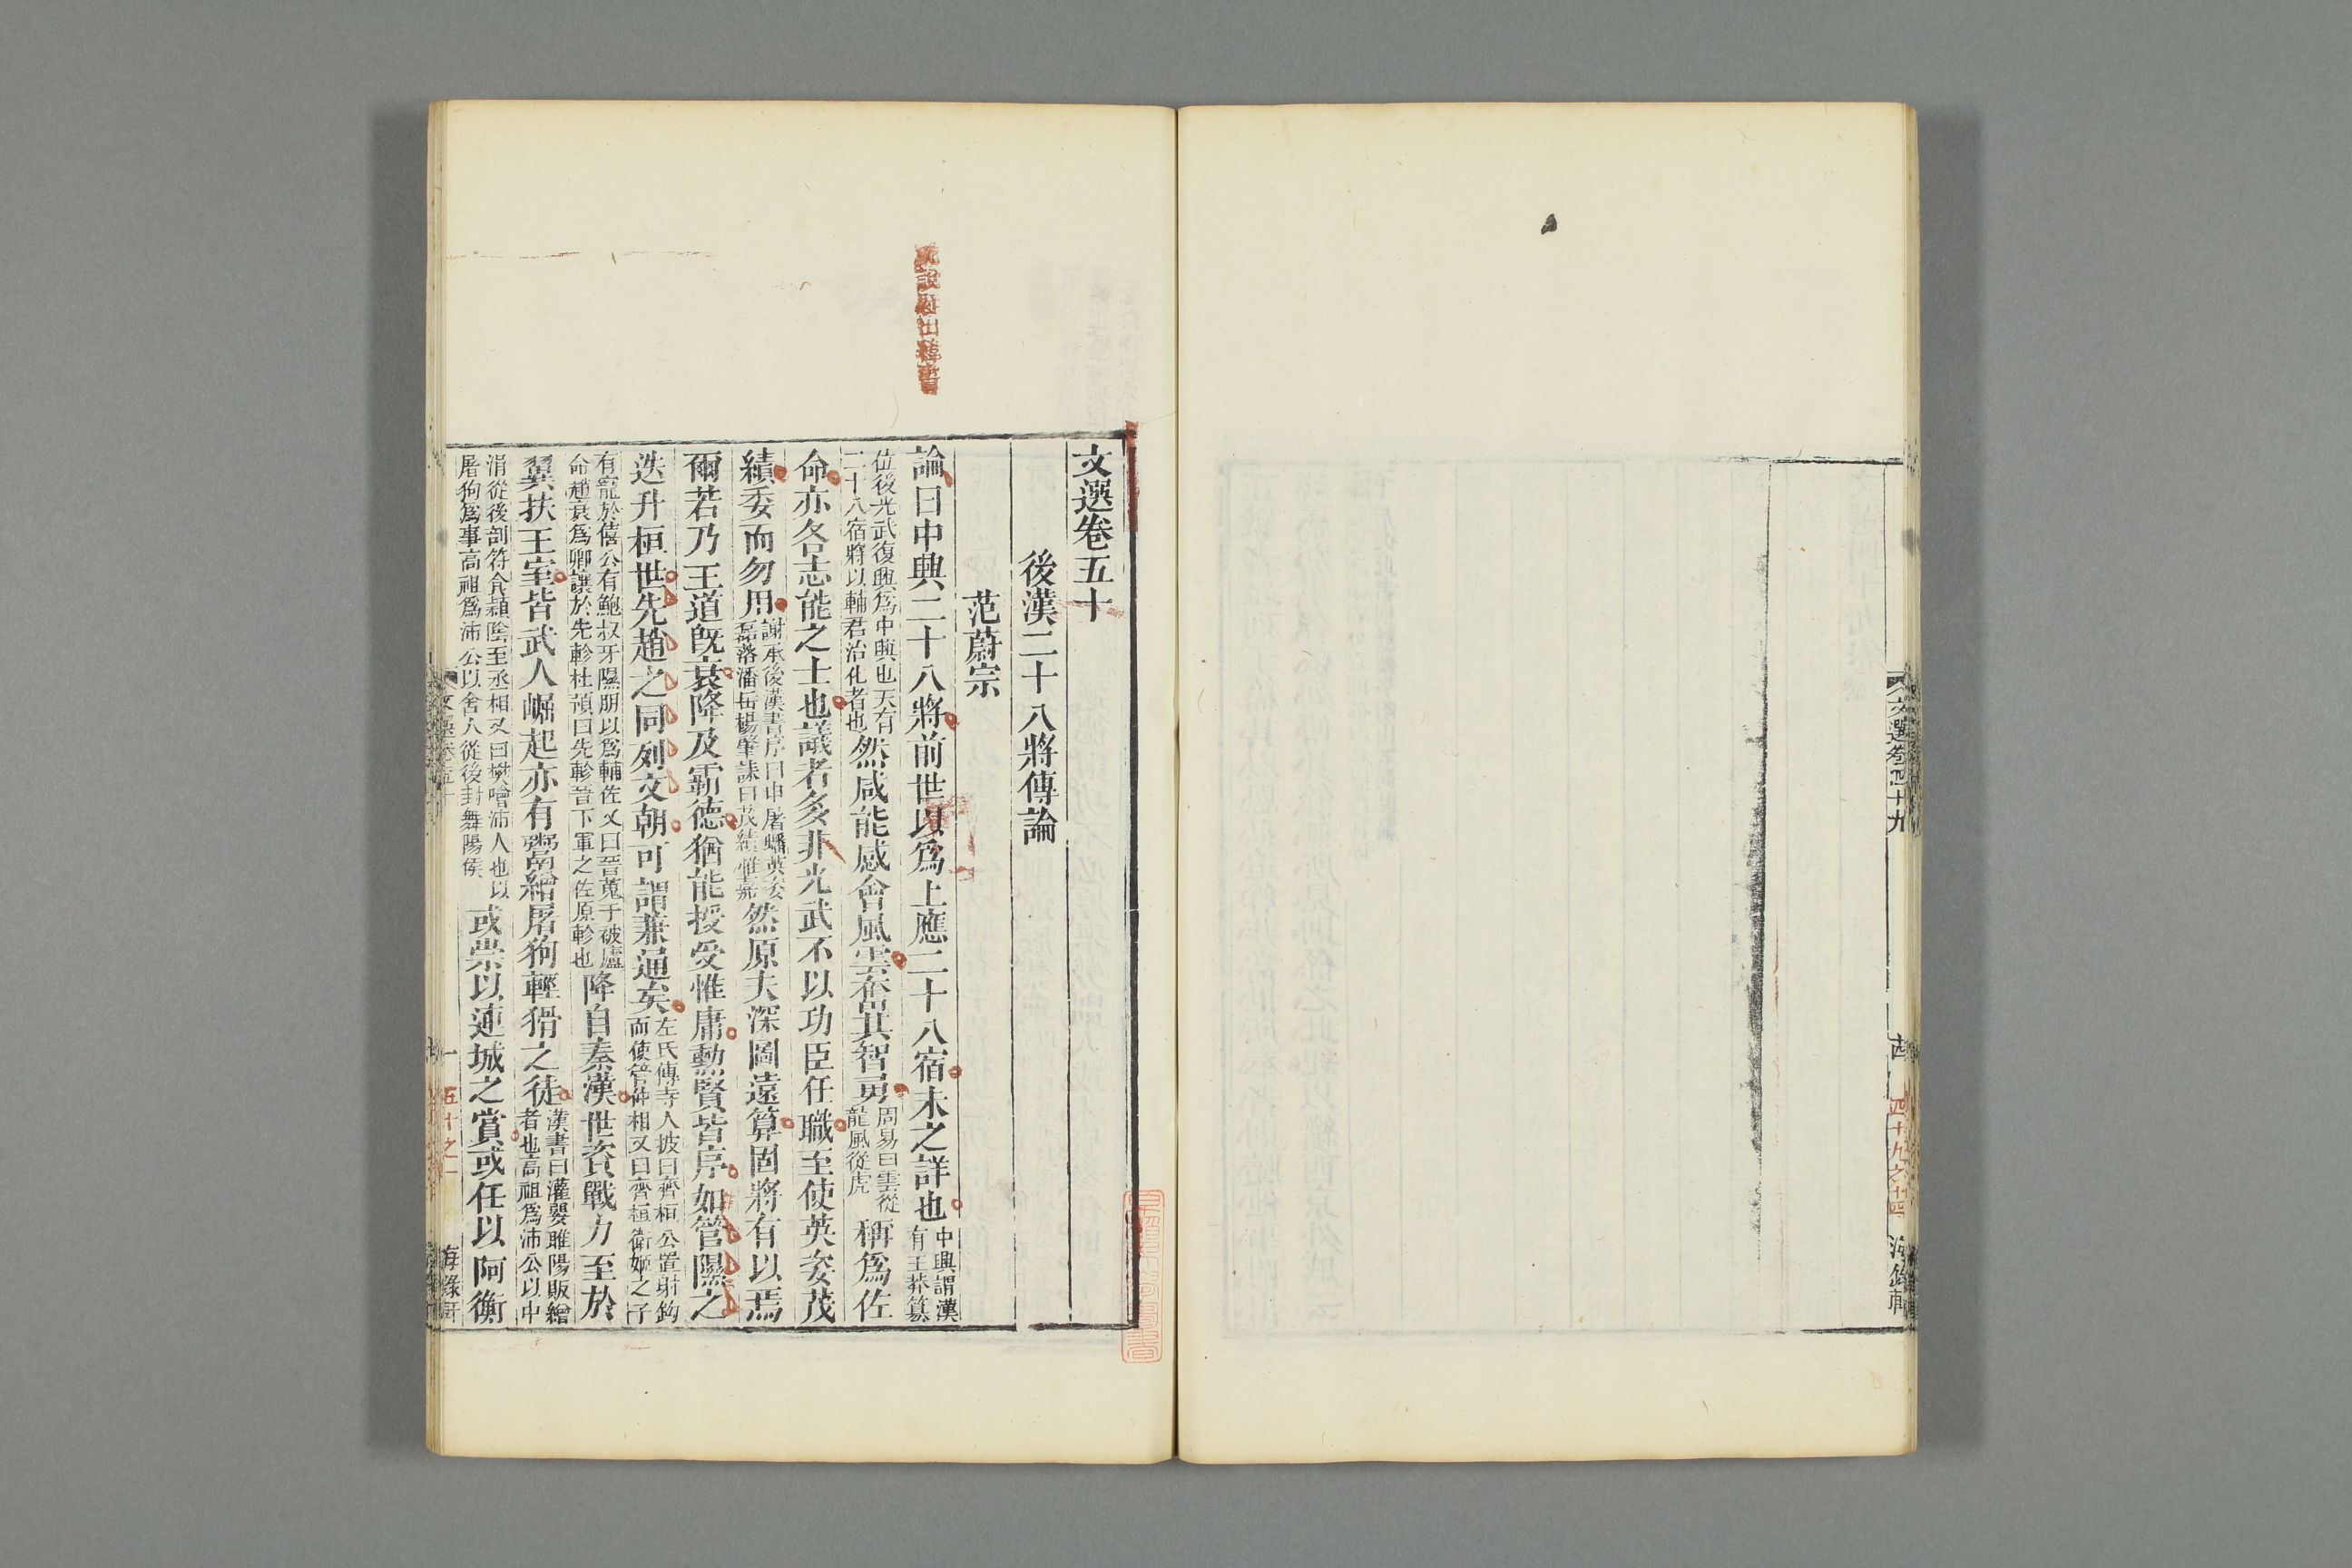 文選卷四十九 四十九之十四
文選卷五十
後漢二十八將傳論
范蔚宗
論曰中興二十八將前世以爲上應二十八宿未之詳也中興謂漢有王莽篡
位後光武復興爲中興也天有二十八宿將以輔君治化者也然咸能感會風雲奮其智勇周易曰雲從龍風從虎稱爲佐
命亦各志能之士也議者多非光武不以功臣任職至使英姿茂
績委而勿用謝承後漢書序曰申屠蟠英姿磊落潘岳楊肇誄曰茂績惟嘉然原夫深圖遠算固將有以焉
爾若乃王道旣衰降及霸德猶能授受惟庸勳賢皆序如管隰之
迭升桓世先趙之同列文朝可謂兼通矣左氏傳寺人披曰齊桓公置射鈎而使管仲相又曰齊桓衛姬之子
有寵於僖公有鮑叔牙隰朋以爲輔佐又曰晉蒐于被廬命趙衰爲卿讓於先軫杜預曰先軫晉下軍之佐原軫也降自秦漢世資戰力至於
翼扶王室皆武人崛起亦有鬻繒屠狗輕猾之徒漢書曰灌嬰睢陽販繒者也高祖爲沛公以中
涓從後剖符食潁陰至丞相又曰樊噲沛人也以屠狗爲事高祖爲沛公以舍人從後封舞陽侯或崇以連城之賞或任以阿衡
文選卷五十 一 五十之一 海錄軒